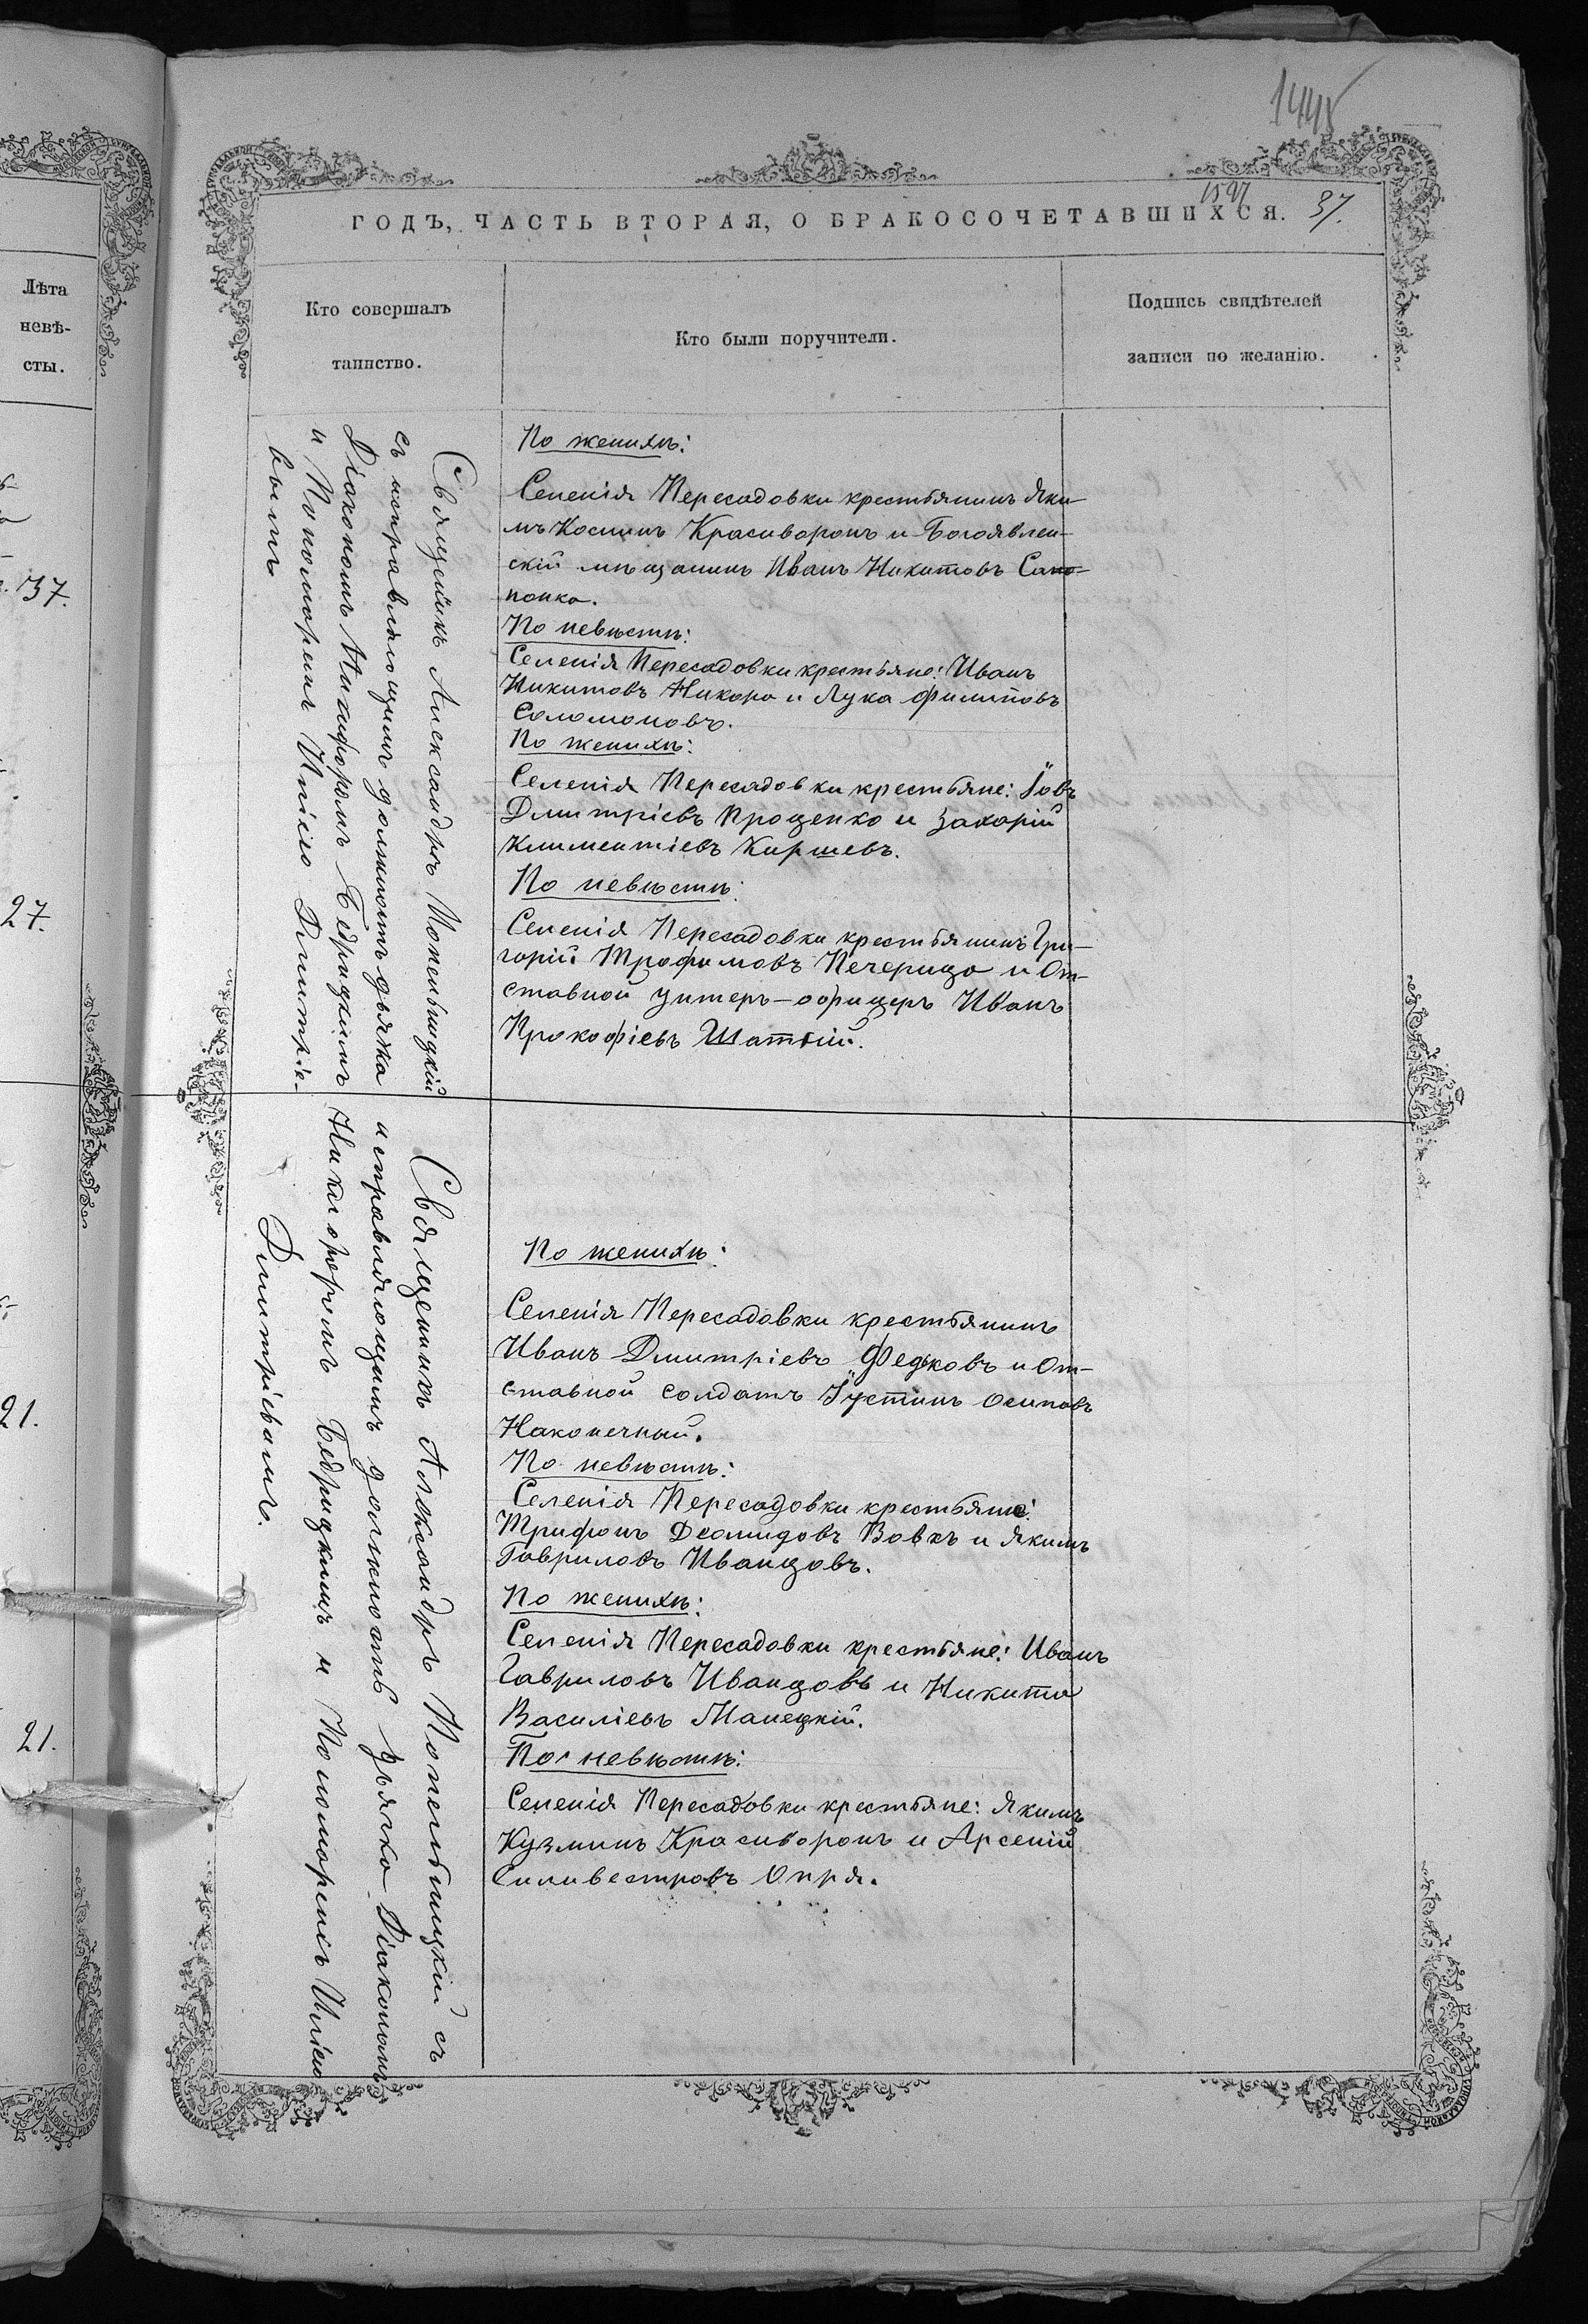 1445
1597
37.
ГОДЪ, ЧАСТЬ ВТОРАЯ, О БРАКОСОЧЕТАВШИХСЯ.
Лѣта
невѣ-
сты.
37.
27.
21.
21.
Кто совершалъ
таинство.
Кто были поручители.
Подпись свидѣтелей
записи по желанію.
Священникъ Александръ Попельницкій
съ исправляющимъ должность дьячка
Діакономъ Никифоромъ Бедрицкимъ
и Пономоремъ Иліею Димитріе-
вымъ
По женихѣ:
Селенія Пересадовки крестьянинъ Яки-
мъ Косминъ Красиворонъ и Богоявлен-
скій мѣщанинъ Иванъ Никитовъ Сапо-
понко.
По невѣстѣ:
Селенія Пересадовки крестьяне: Иванъ
Никитовъ Никора и Лука Филиповъ
Соломоновъ.
По женихѣ:
Селенія Пересадовки крестьяне: Іовъ
Дмитріевъ Проценко и Захарій
Климентіевъ Киршевъ.
По невѣстѣ:
Селенія Пересадовки крестьянинъ Гри-
горій Трофимовъ Печерица и От-
ставной унтеръ-офицеръ Иванъ
Прокофіевъ Шаттій.
Священникъ Александръ Попельницкій съ
исправляющимъ должность дьячка Діакономъ
Никифоромъ Бедрицкимъ и Пономоремъ Иліею
Димитріевымъ.
По женихѣ:
Селенія Пересадовки крестьянинъ
Иванъ Дмитріевъ Федьковъ и От-
ставной солдатъ Іустинъ Осиповъ
Наконечный.
По невѣстѣ:
Селенія Пересадовки крестьяне:
Трифонъ Деомидовъ Вовкъ и Якимъ
Гавриловъ Иванцовъ.
По женихѣ:
Селенія Пересадовки крестьяне: Иванъ
Гавриловъ Иванцовъ и Никита
Василіевъ Манецкій.
По невѣстѣ:
Селенія Пересадовки крестьяне: Якимъ
Кузминъ Красиворонъ и Арсеній
Силивестровъ Опря.